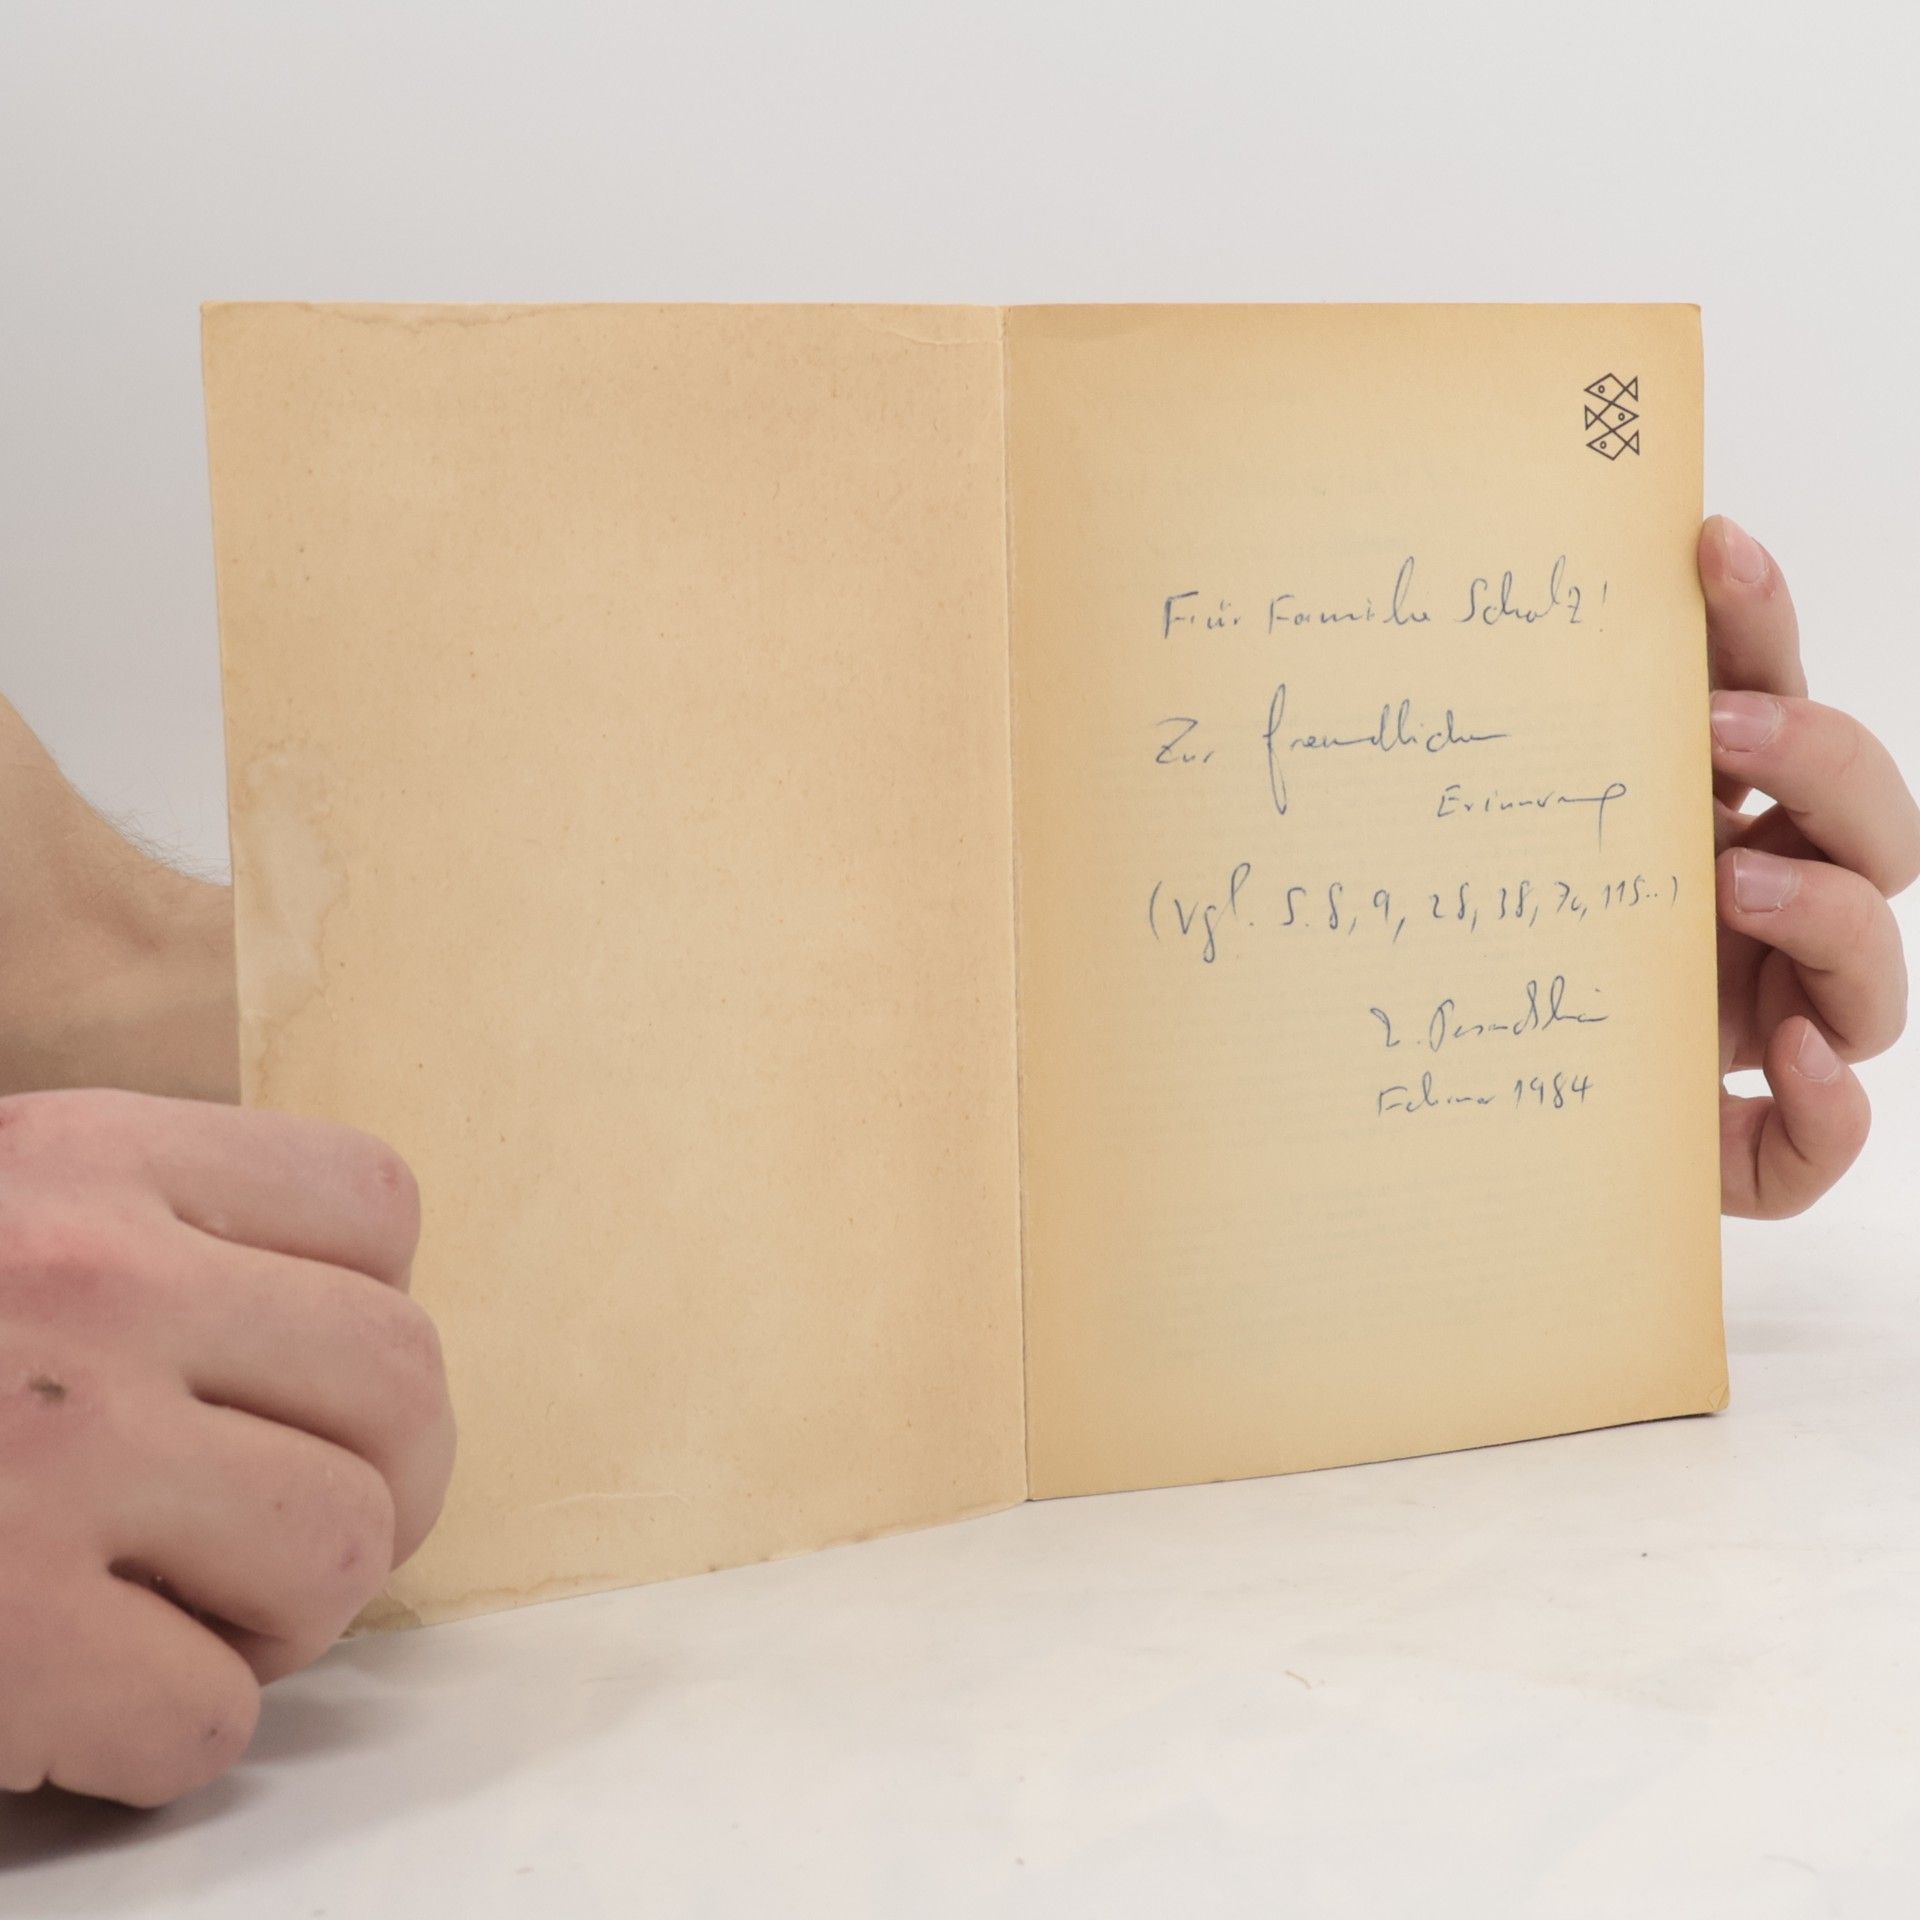 Für Familie Scholz!
Zur freundlichen
Erinnerung
(Vgl. S. 8, 9, 28, 38, 70, 115..)
Februar 1984